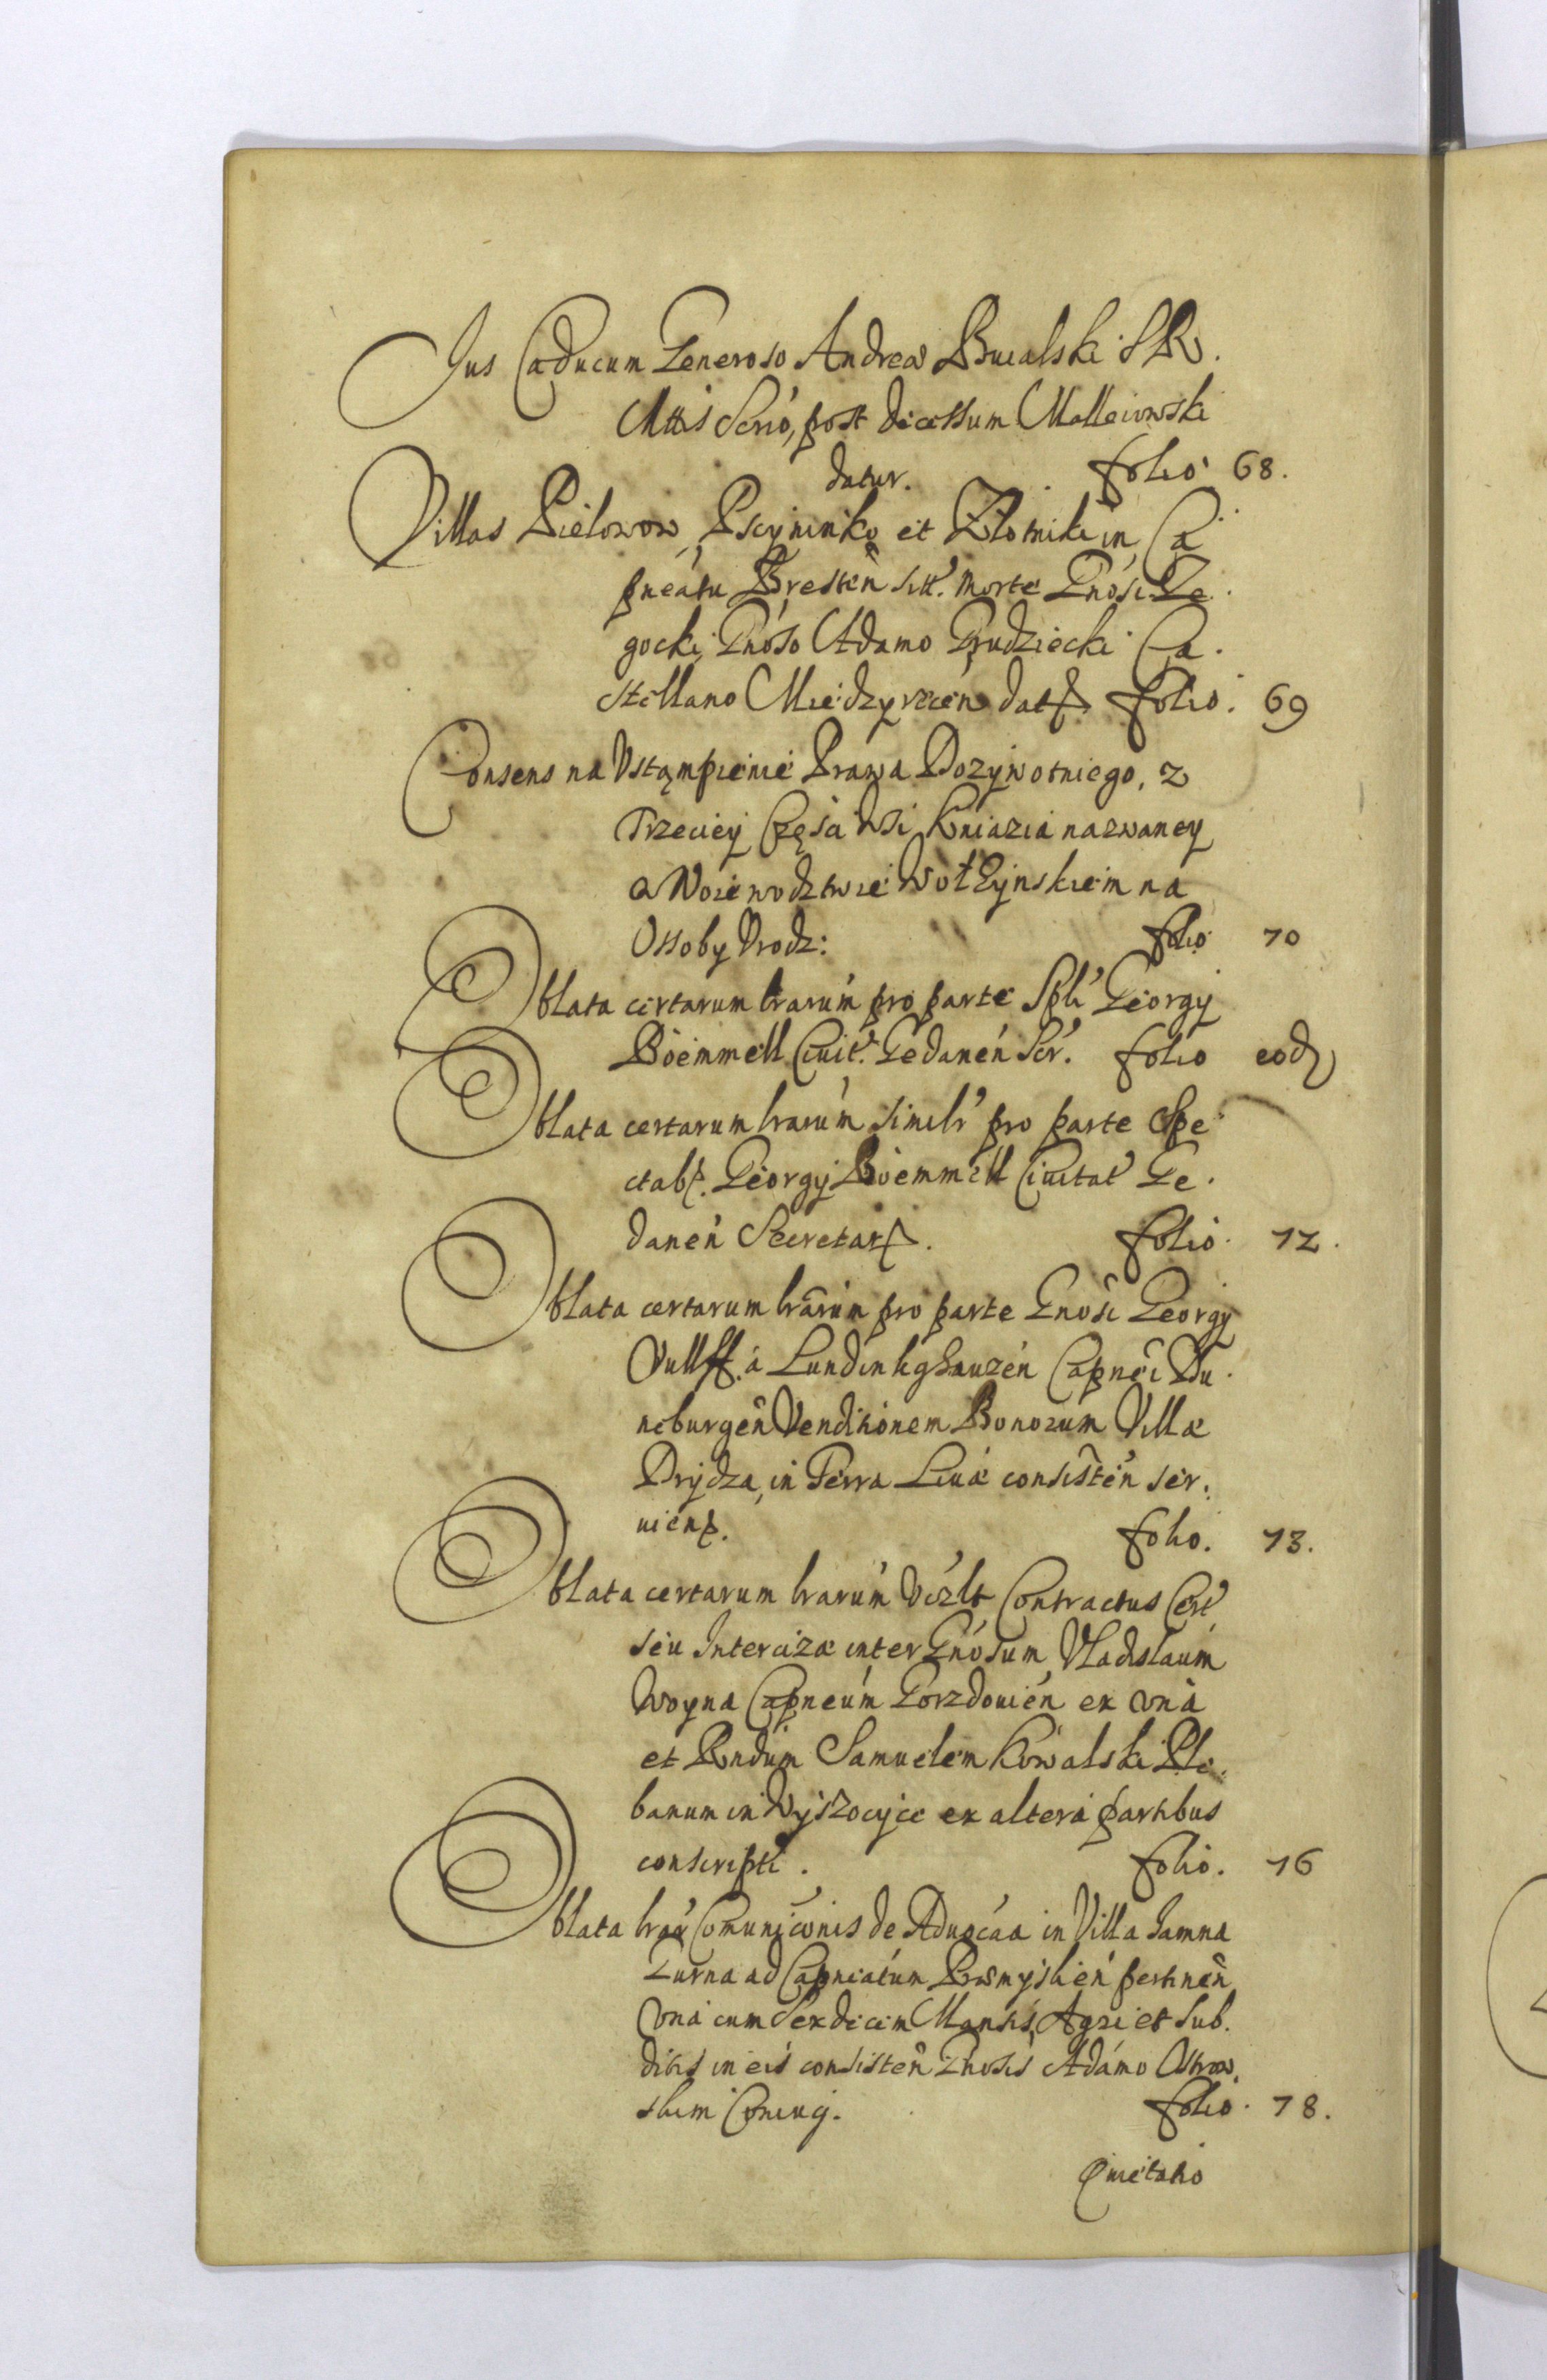 Jus Caducum Generoso Andreæ Bucalski S R
Mttis Scrio, post dicessum Malleiowski
datur. folio 68.
Villas Bielowow, Psczyninko et Złotniki in Ca
pneatu Brestèn sitt. morte Gnosi Ze
gocki, Gnoso Adamo Grudziecki Ca.
stellano Miedzyrzecen datt folio. 69
Consens na Vstąmpienie Prawa Dozywotniego, z
Trzeciey Częsci Wsi Kniazia nazwaney
a Woiewodztwie Wołhynskiem na
Ossoby Vrodz: folio 70
Oblata certarum lrarum pro parte Spli Georgy
Böemmell Ciuit. Gedanen Scr. folio eod
Oblata certarum lrarum similr pro parte Spe
ctabl. Georgy Böemmell Ciuitat Ge.
danen Secretar. folio 72.
Oblata certarum lrarum pro parte Gnosi Georgy
Vullff. a Lundinkghauzen Capnei Du.
neburgen Venditionem Bonorum Villæ
Drydza, in Terra Liuæ consisten ser.
uien. folio. 73.
Oblata certarum lrarum Vizlt Contractus Cert
seu Intercizæ inter Gnosum Vladislaum
Woyna Capneum Gorzdouien ex vna
et Rndum Samuelem Kowalski Ple.
banum in Wyszocyce ex altera partibus
conscripti. folio. 76
Oblata lrar Comuniconis de Aduocáa in Villa Jamna
Gurna ad Capneatum Præmyslien pertinen
Vna cum Sexdecim Mansis, Agri et Sub.
ditis in eis consisten Gnosis Adamo Ostrow.
skim Coniug. folio 78.
Quietatio